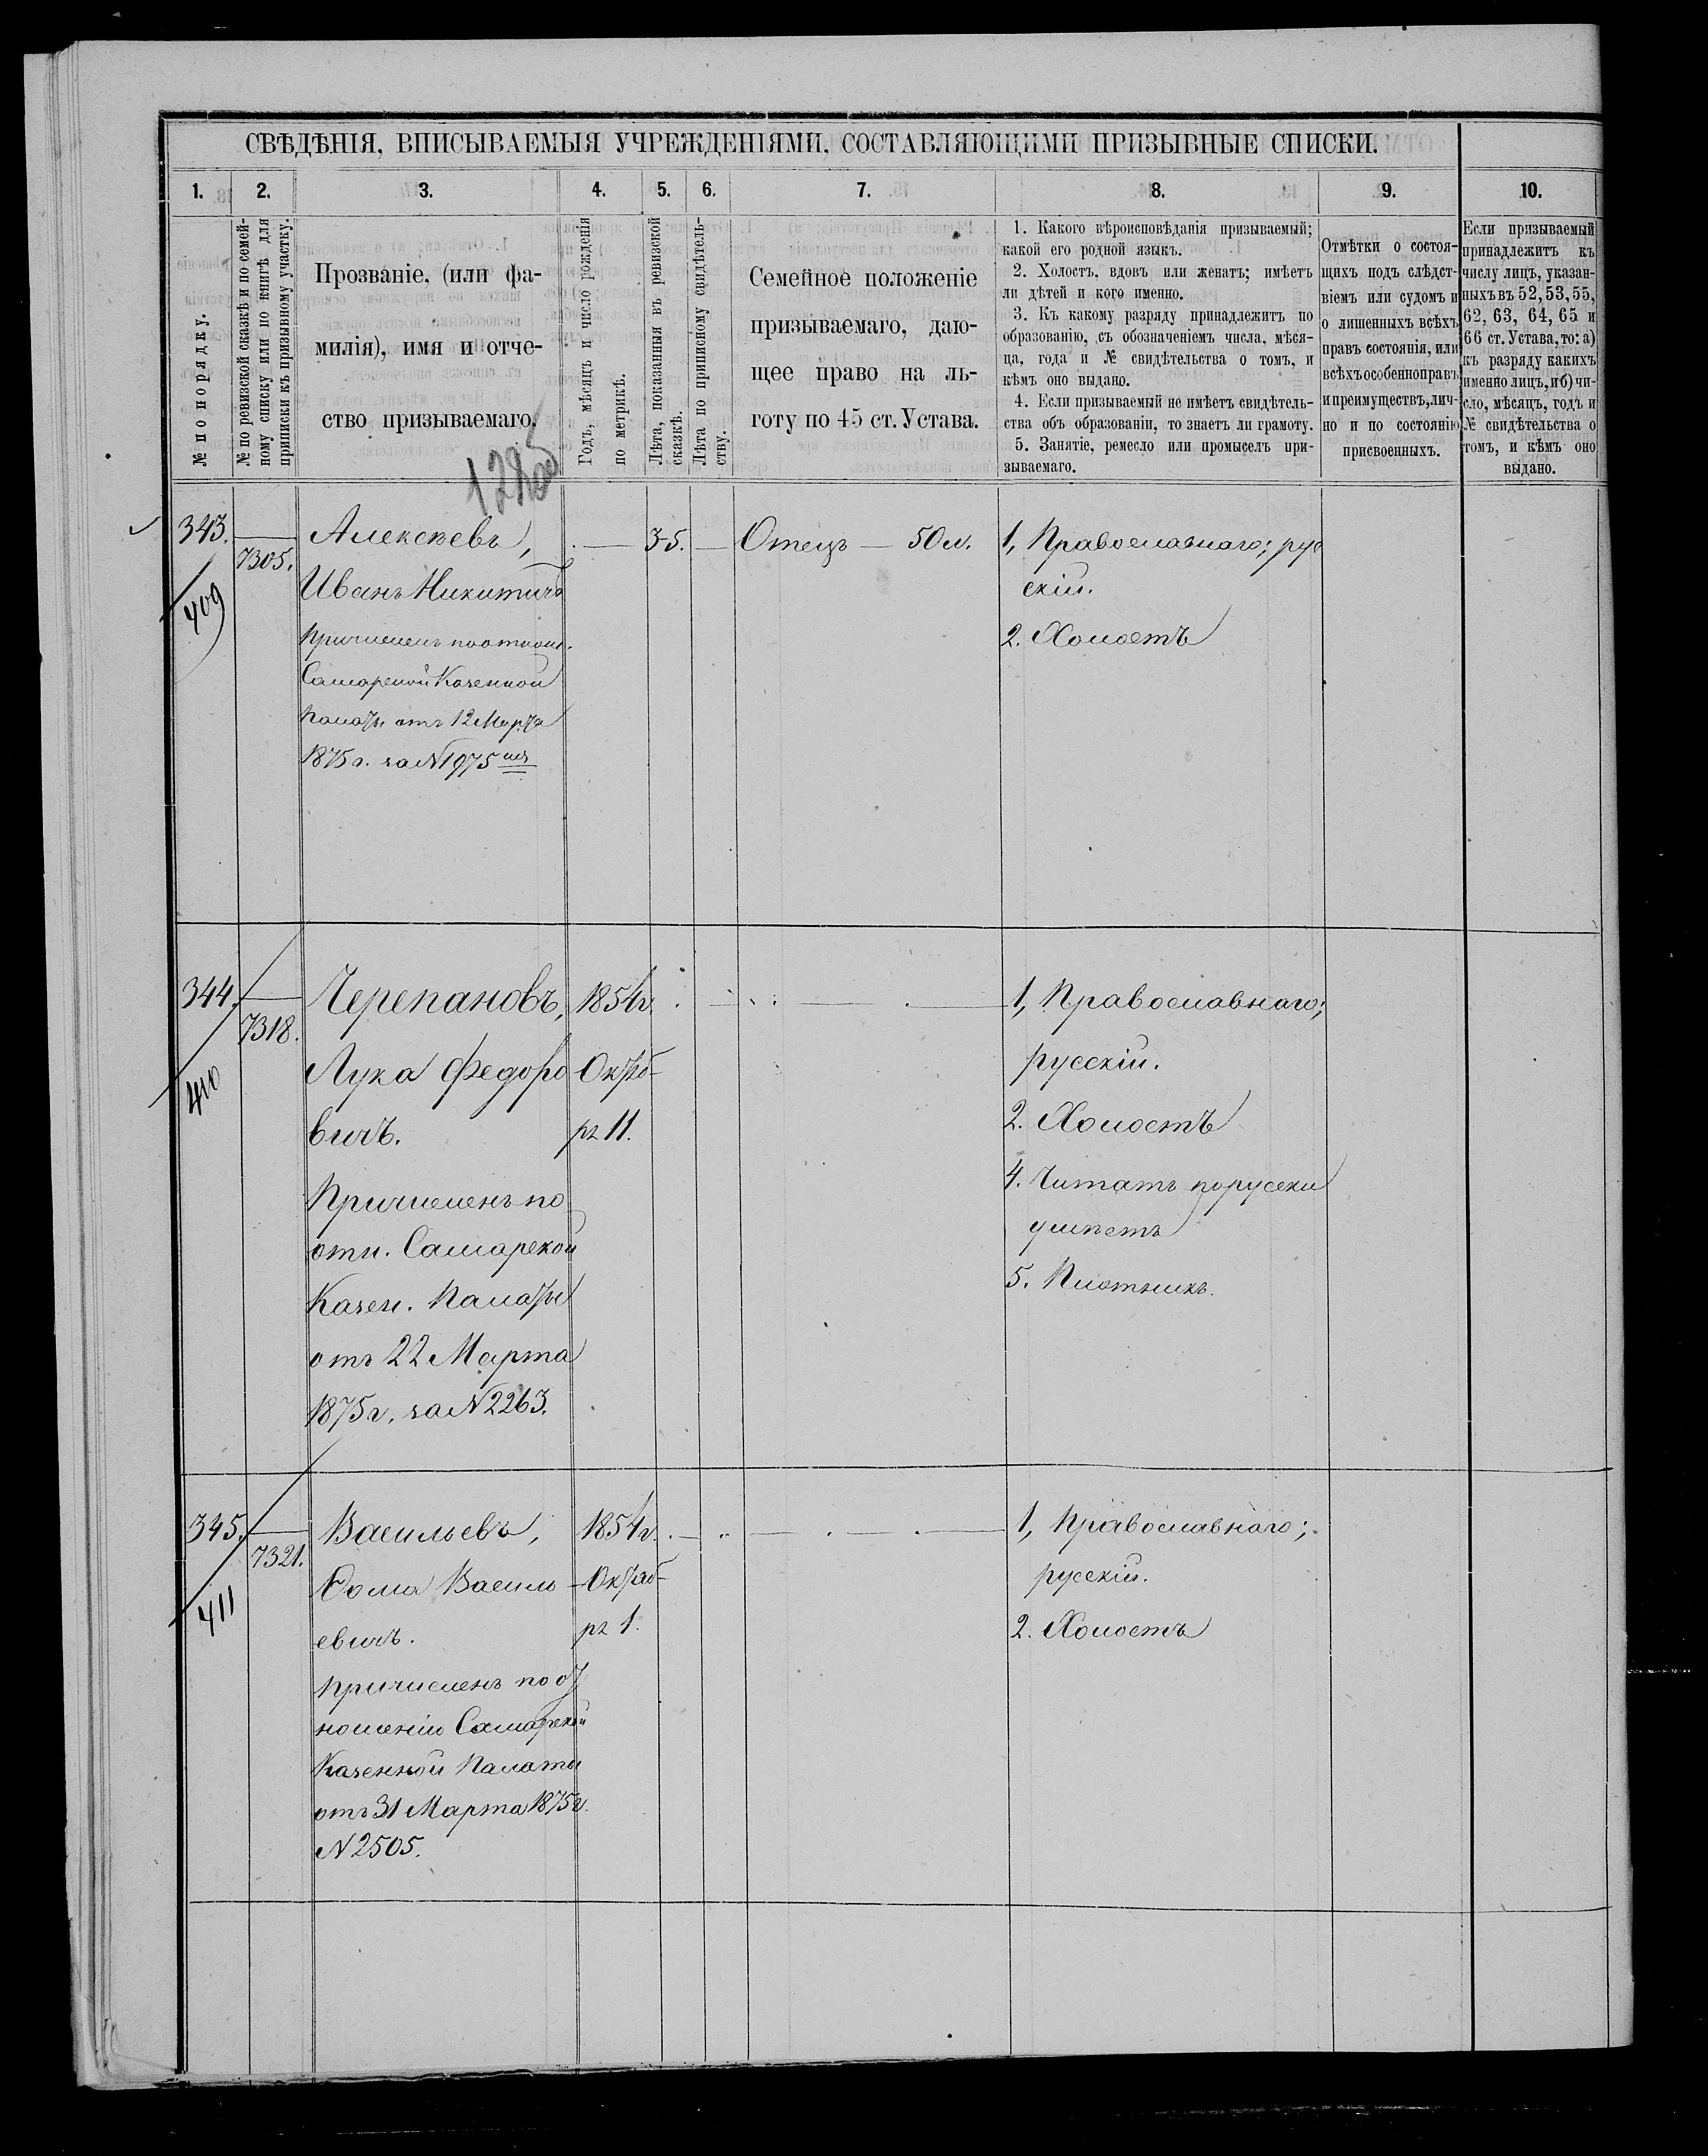 СВѢДѢНІЯ, ВПИСЫВАЕМЫЯ УЧРЕЖДЕНІЯМИ, СОСТАВЛЯЮЩИМИ ПРИЗЫВНЫЕ СПИСКИ.
1. 2. 3. 4. 5. 6. 7. 8. 9. 10.
№ по порядку.
№ по ревизской сказкѣ и по семей-
ному списку или по книгѣ для
приписки къ призывному участку.
Прозваніе, (или фа-
милія), имя и отче-
ство призываемаго.
Годъ, мѣсяцъ и число рожденія
по метрикѣ.
Лѣта, показанныя въ ревизской
сказкѣ.
Лѣта по приписному свидѣтель-
ству.
Семейное положеніе
призываемаго, даю-
щее право на ль-
готу по 45 ст. Устава.
1. Какого вѣроисповѣданія призываемый;
какой его родной языкъ.
2. Холостъ, вдовъ или женатъ; имѣетъ
ли дѣтей и кого именно.
3. Къ какому разряду принадлежитъ по
образованію, съ обозначеніемъ числа, мѣся-
ца, года и № свидѣтельства о томъ, и
кѣмъ оно выдано.
4. Если призываемый не имѣетъ свидѣтель-
ства объ образованіи, то знаетъ ли грамоту.
5. Занятіе, ремесло или промыселъ при-
зываемаго.
Отмѣтки о состоя-
щихъ подъ слѣдст-
віемъ или судомъ и
о лишенныхъ всѣхъ
правъ состоянія, или
всѣхъ особенно правъ
и преимуществъ, лич-
но и по состоянію
присвоенныхъ.
Если призываемый
принадлежитъ къ
числу лицъ, указан-
ныхъ въ 52, 53, 55,
62, 63, 64, 65 и
66 ст. Устава, то: а)
къ разряду какихъ
именно лицъ, и б) чи-
сло, мѣсяцъ, годъ и
№ свидѣтельства о
томъ, и кѣмъ оно
выдано.
343.
409
7305.
Алексѣевъ,
Иванъ Никитичъ
причисленъ по отнош.
Самарской Казенной
Палаты отъ 12 Марта
1875 г. за № 1975
35.
Отецъ — 50 л.
1, Православнаго; рус
скій.
2. Холостъ
344.
410
7318.
Черепановъ,
Лука Федоро
вичъ.
Причисленъ по
отн. Самарской
Казен. Палаты
отъ 22 Марта
1875 г. за № 2263.
1854 г.
Октяб-
ря 11.
1, Православнаго;
русскій.
2. Холостъ
4. Читать порусски
умѣетъ
5. Плотникъ.
345.
411
7321.
Васильевъ,
Ѳома Василь
евичъ.
причисленъ по от
ношенію Самарской
Казенной Палаты
отъ 31 Марта 1875 г.
№ 2505.
1854 г.
Октяб-
ря 1.
1, Православнаго;
русскій.
2. Холостъ